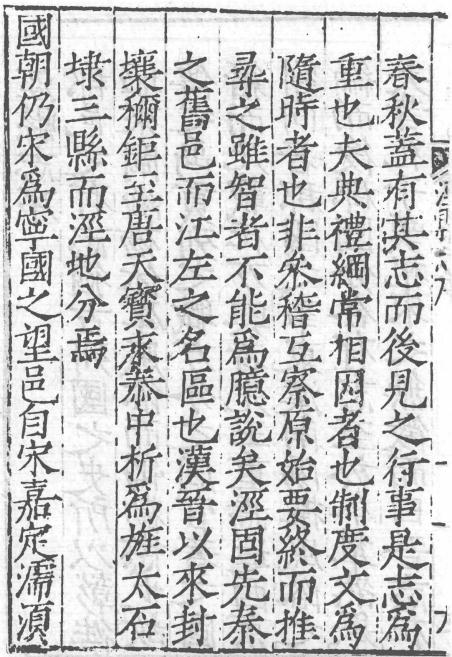 春秋蓋有其志而後見之行事是志爲
重也夫典禮綱常相因者也制度文爲
隨時者也非叅稽互察原始要終而推
尋之雖智者不能爲臆說矣涇固先秦
之舊邑而江左之名區也漢晉以來封
壤禰鉅至唐天寳永泰中析爲旌太石
埭三縣而涇地分焉
國朝仍宋爲寧國之望邑自宋嘉定濡湏